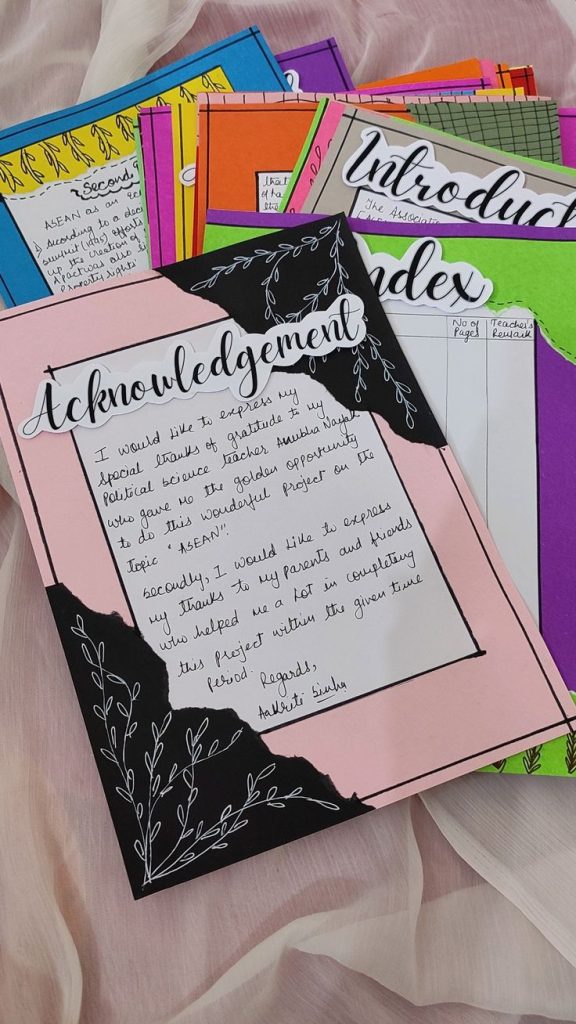 Acknowledgement
I would like to express my
special thanks of gratitude to my
Political science teacher Anubha Nayak
who gave me the golden opportunity
to do this wonderful project on the
topic "ASEAN".
Secondly, I would like to express
my thanks to my parents and friends
who helped me a lot in completing
this project within the given time
period.
Regards,
Aakriti Sinha
Index
No. of
Pages
Teacher's
Remark
Introduct
The Associat
Second
ASEAN as an
According to a
summit
efforts
up the creation of
A pact was also
Property rights
that
of ha